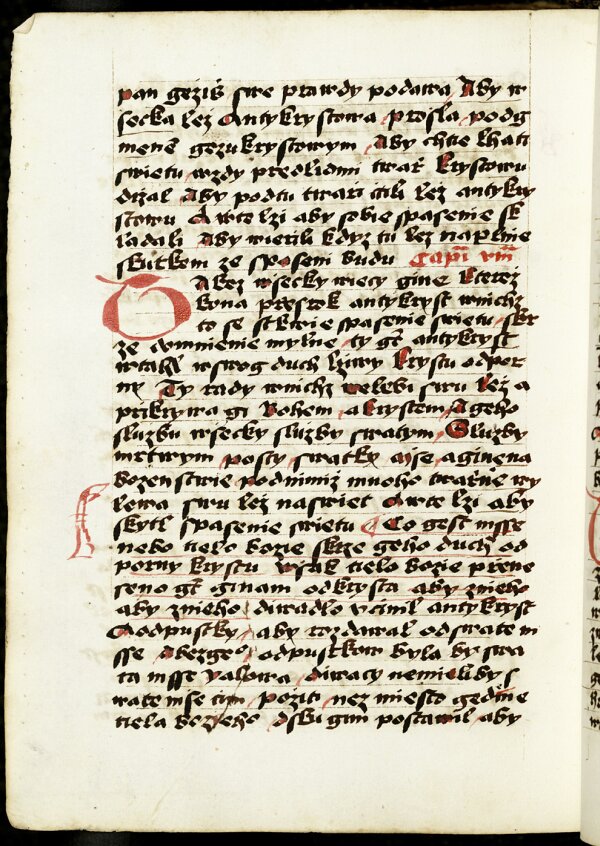 pan gezis swe prawdy podawa Aby w
secka lez Antykrystowa prosla podg
menē gezukrystowym Aby chtie lhati
swietu wzdy predlidmi twař krystowu
držal Aby podtu twari ctili lez antykry
stowu A wte lzi aby sobie spasenie sk
ladali Aby wierili kdyz tu lez naplnie
skutkem ze spaseni budu Capi viii
A bez wsecky wiecy gine kterez
kona prorok antykryst wnichz
to se stkwie spasenie swietu skr
ze domnienie mylne ty gt antykryst
wtahl wswog duch lziwy krystu odpor
ny Ty tady wnichz welebi swu lez a
prikrywa gi bohem a krystem A geho
sluzbu wsecky sluzby swatym Sluzby
mrtwym posty swatky mse a gina na
bozenstwie podnimiz mnoho twarne wy
lewa swu lez naswiet A wte lzi aby
skytl spasenie swietu Co gest msse
nebo tielo bozie skrze geho duch od
porny krystu wsak tielo bozie prene
seno gt ginam odkrysta aby zneho
aby zneho diwadlo vcinil antykryst
A odpustky aby rozdawal odswate m
sse A bezgeo odpustkow byla by swa
ta msse yalowa diwacy nemieliby s
wate mse tym poziti nez miesto gedine
tiela bozieho osbu gim postawil aby